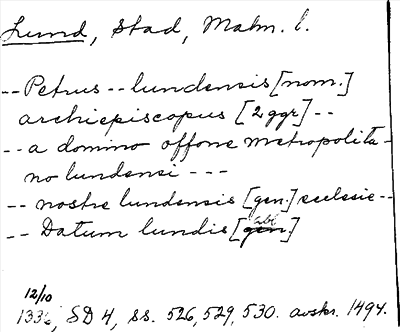 Lund, Stad, Malm. l.
-- Petrus -- lundensis [nom.]
archiepiscopus [2 ggr] --
-- a domino offone metropolita-
no lundensi ---
-- nostre lundensis [gen.] ecclesie --
-- Datum lundis [gen. abl.]
12/10
1336, SD 4, ss. 526, 529, 530. avskr. 1494.